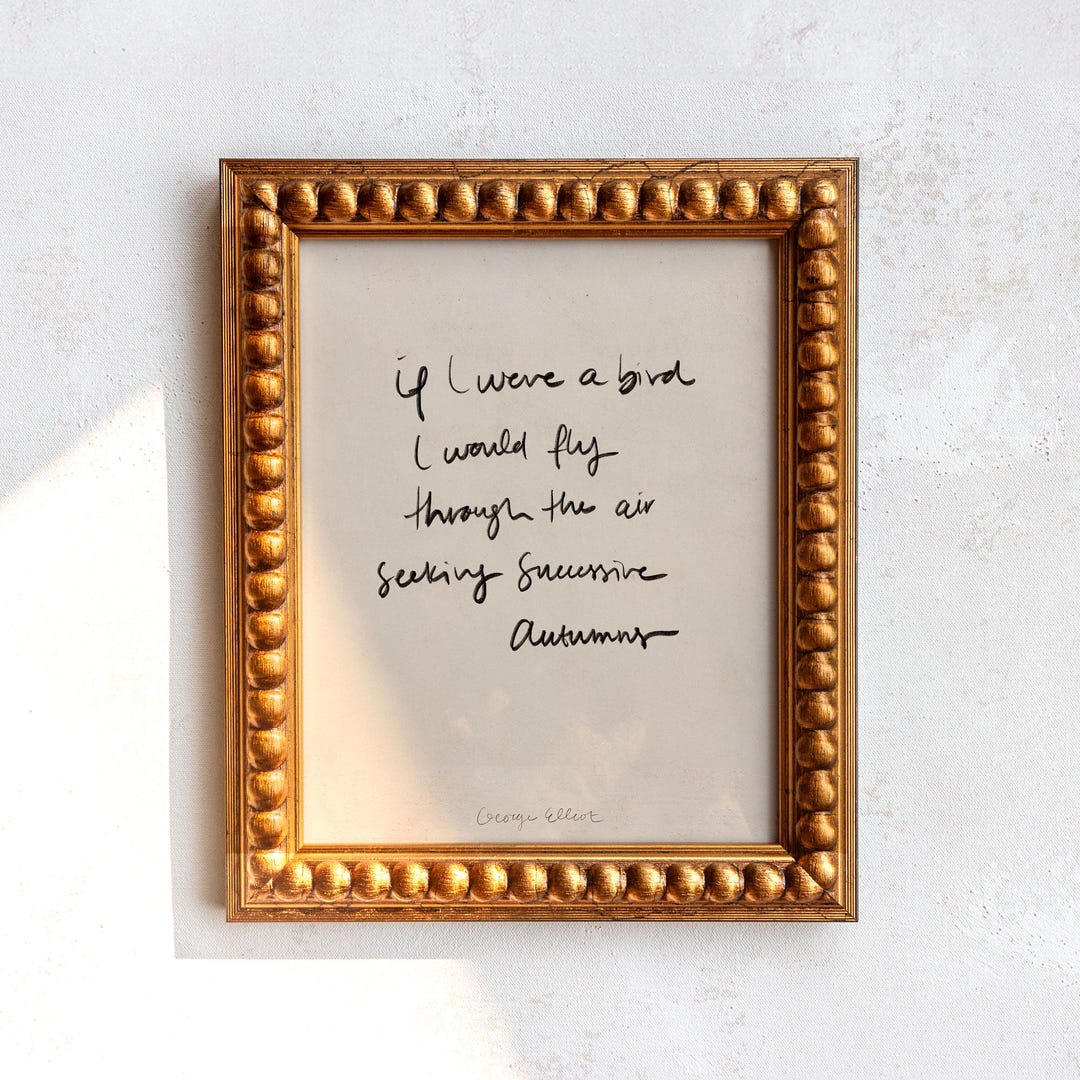 if I were a bird
I would fly
through the air
seeking successive
autumns
George Elliot